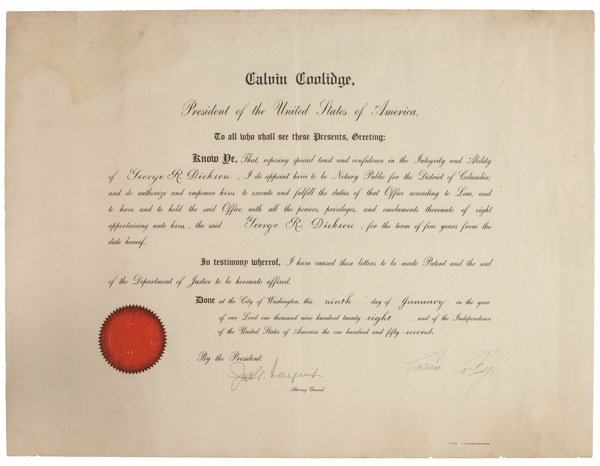 Calvin Coolidge,
President of the United States of America,
To all who shall see these Presents, Greeting:
Know Ye, That, reposing special trust and confidence in the Integrity and Ability
of George R. Dickson, I do appoint him to be Notary Public for the District of Columbia;
and do authorize and empower him to execute and fulfill the duties of that Office according to Law, and
to have and to hold the said Office, with all the powers, privileges, and emoluments thereunto of right
appertaining unto him, the said George R. Dickson, for the term of five years from the
date hereof.
In testimony whereof, I have caused these letters to be made Patent and the seal
of the Department of Justice to be hereunto affixed.
Done at the City of Washington, this ninth day of January in the year
of our Lord one thousand nine hundred twenty-eight, and of the Independence
of the United States of America the one hundred and fifty-second.
By the President:
Jno. G. Sargent
Attorney General.
Calvin Coolidge